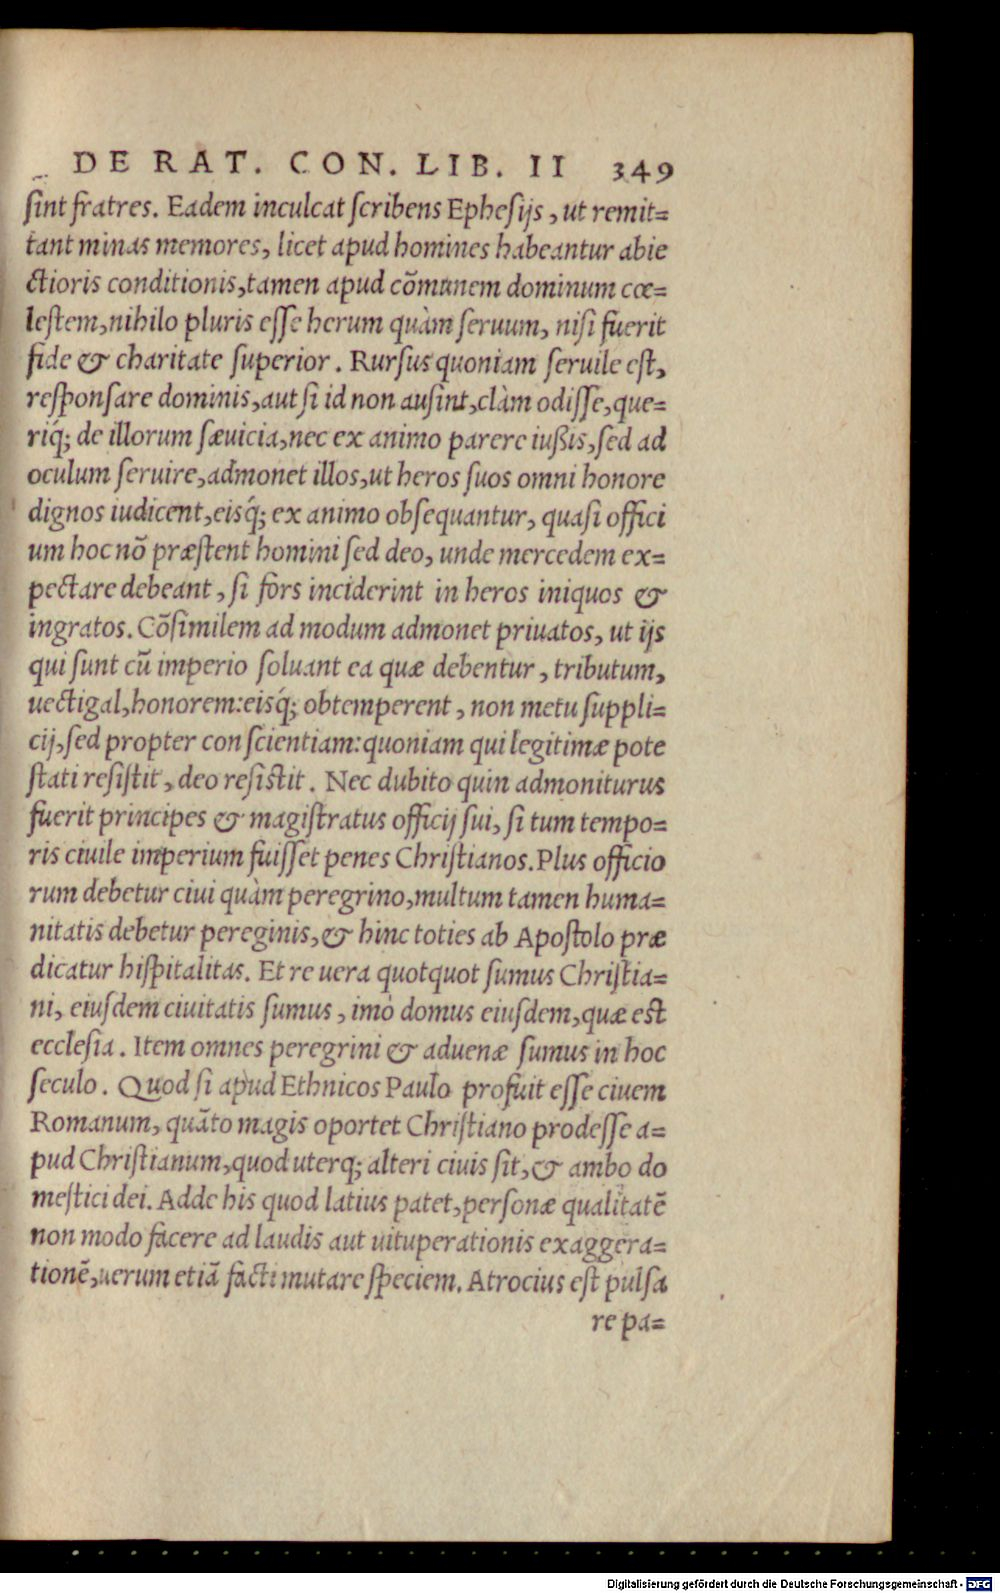 DE RAT. CON. LIB. II 349
ſint fratres. Eadem inculcat ſcribens Epheſijs, ut remit=
tant minas memores, licet apud homines habeantur abie
ctioris conditionis, tamen apud cõmunem dominum cœ=
leſtem, nihilo pluris eſſe herum quàm ſeruum, niſi fuerit
fide & charitate ſuperior. Rurſus quoniam ſeruile eſt,
reſponſare dominis, aut ſi id non auſint, clàm odiſſe, que=
riq́; de illorum ſæuicia, nec ex animo parere iußis, ſed ad
oculum ſeruire, admonet illos, ut heros ſuos omni honore
dignos iudicent, eisq́; ex animo obſequantur, quaſi offici
um hoc nõ præſtent homini ſed deo, unde mercedem ex=
pectare debeant, ſi fors inciderint in heros iniquos &
ingratos. Cõſimilem ad modum admonet priuatos, ut ijs
qui ſunt cũ imperio ſoluant ea quæ debentur, tributum,
uectigal, honorem: eisq́; obtemperent, non metu ſuppli=
cij, ſed propter conſcientiam: quoniam qui legitimæ pote
ſtati reſiſtit, deo reſiſtit. Nec dubito quin admoniturus
fuerit principes & magiſtratus officij ſui, ſi tum tempo=
ris ciuile imperium fuiſſet penes Chriſtianos. Plus officio
rum debetur ciui quàm peregrino, multum tamen huma=
nitatis debetur pereginis, & hinc toties ab Apoſtolo præ
dicatur hiſpitalitas. Et re uera quotquot ſumus Chriſtia=
ni, eiuſdem ciuitatis ſumus, imò domus eiuſdem, quæ est
eccleſia. Item omnes peregrini & aduenæ ſumus in hoc
ſeculo. Quod ſi apud Ethnicos Paulo profuit eſſe ciuem
Romanum, quãto magis oportet Chriſtiano prodeſſe a=
pud Chriſtianum, quod uterq; alteri ciuis ſit, & ambo do
meſtici dei. Adde his quod latius patet, perſonæ qualitatẽ
non modo facere ad laudis aut uituperationis exaggera=
tionẽ, uerum etiã facti mutare ſpeciem. Atrocius eſt pulſa
re pa=
Digitalisierung gefördert durch die Deutsche Forschungsgemeinschaft - DFG